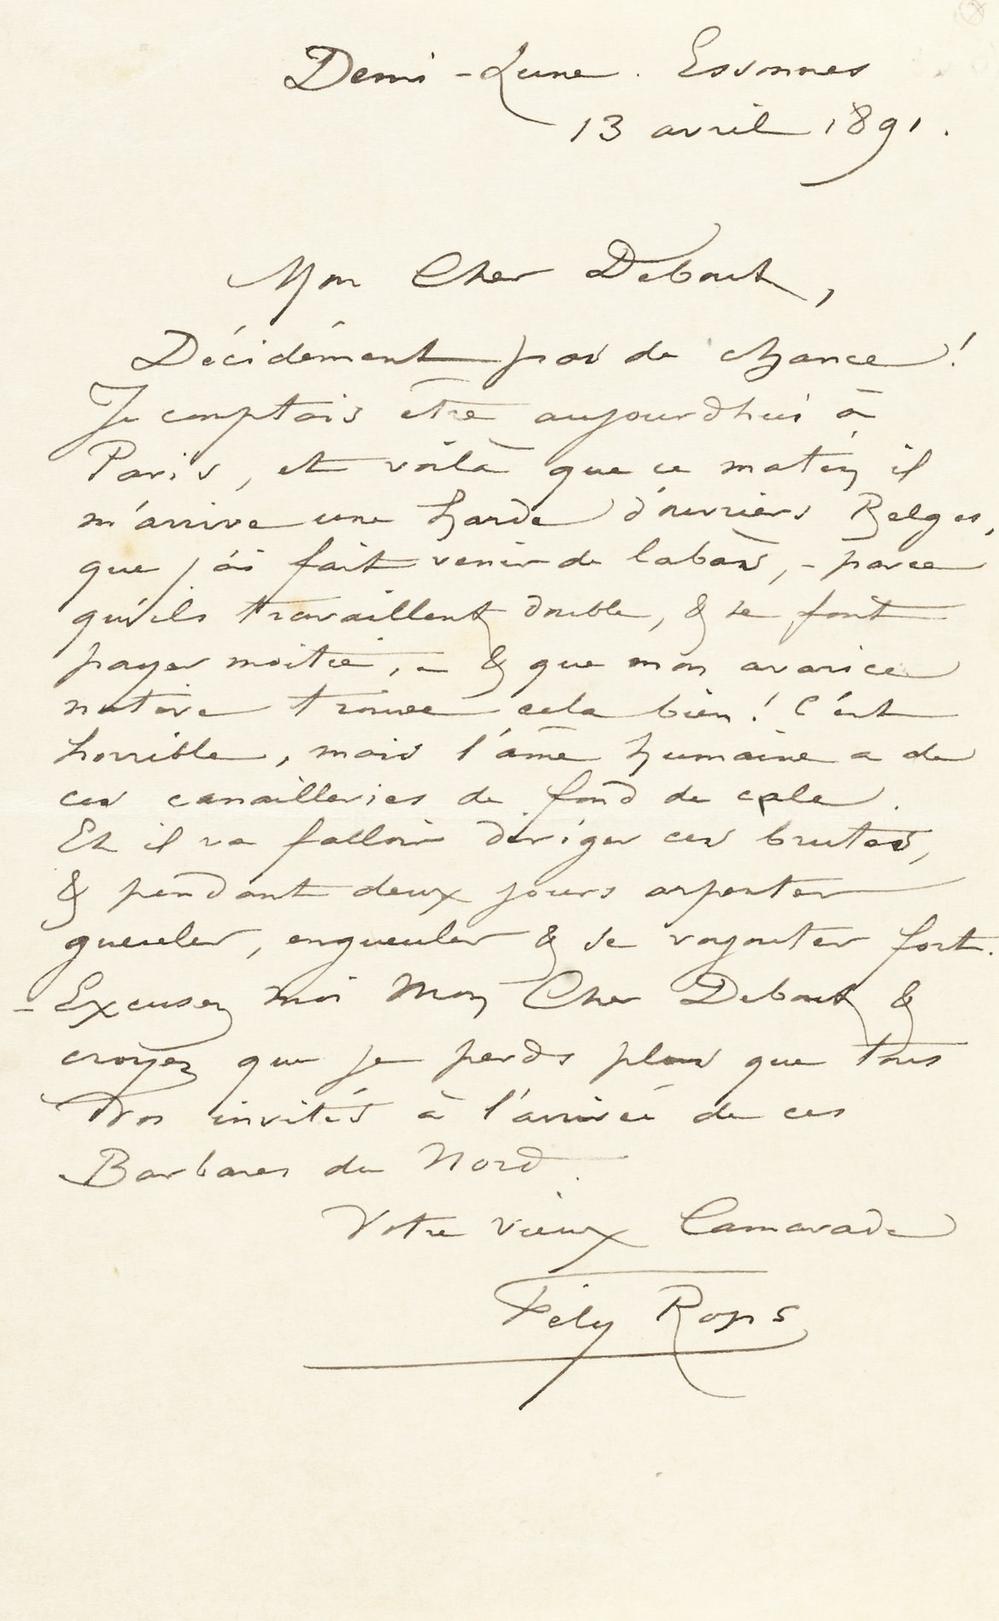 Demi-Lune. Essonnes
13 avril 1891.
Mon Cher Debout,
Décidément pas de chance !
Je comptais être aujourdhui à
Paris, et voilà que ce matin il
m'arrive une harde d'ouvriers Belges,
que j'ai fait venir de labas, - parce
qu'ils travaillent double, & se font
payer moitié, - & que mon avarice
native trouve cela bien ! C'est
horrible, mais l'âme humaine a de
ces canailleries de fond de cale.
Et il va falloir diriger ces brutes,
& pendant deux jours arpenter
gueuler, engueuler & se voyouter fort.
- Excusez moi Mon Cher Debout &
croyez que je perds plus que tous
Vos invités à l'arrivée de ces
Barbares du Nord.
Votre vieux Camarade
Fély Rops